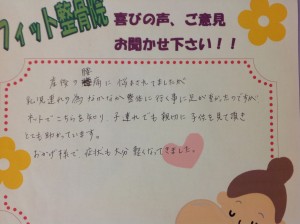 フィット整骨院
喜びの声、ご意見
お聞かせ下さい！！
産後の腰痛に悩まされてましたが
乳児連れの為なかなか整体に行く事に足が重かったのですが
ネットでこちらを知り、子連れでも親切に子供を見て頂き
とても助かっています。
おかげ様で症状も大分軽くなってきました。